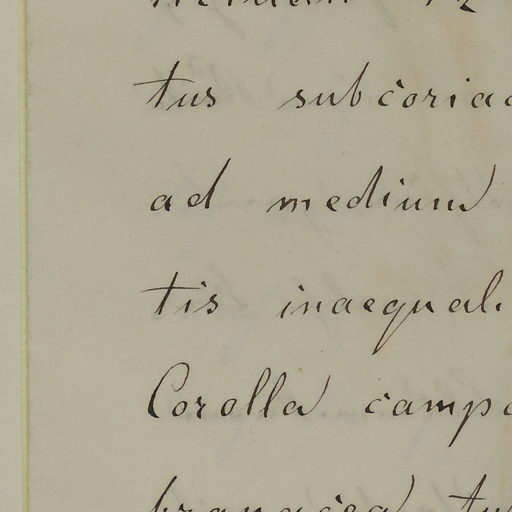 tus subcoria
ad medium
tis inaequal
Corolla campa